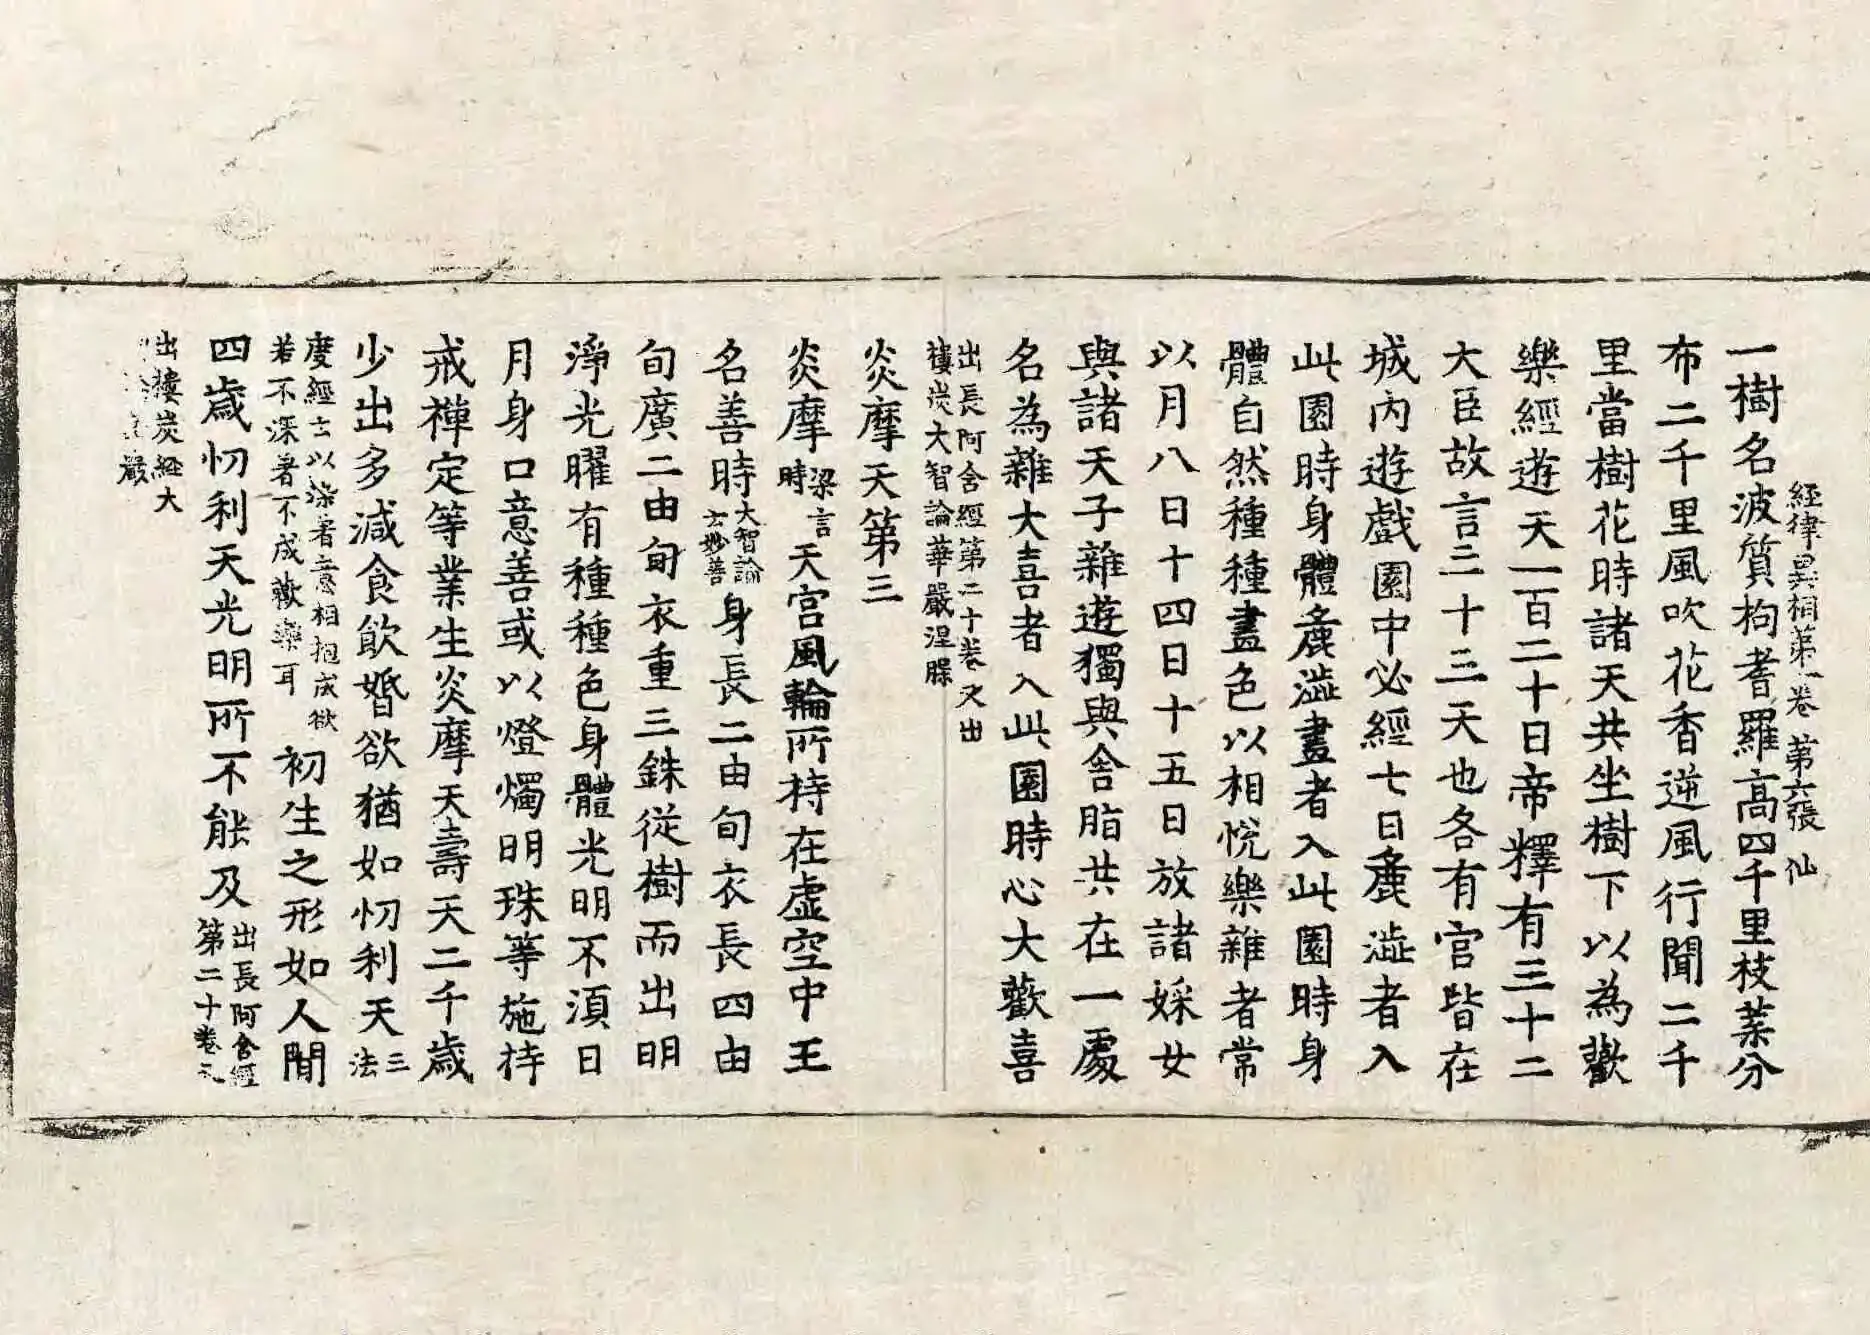 經律異相第一卷 第六張 仙
一樹名波質拘耆羅高四千里枝葉分
布二千里風吹花香逆風行聞二千
里當樹花時諸天共坐樹下以為歡
樂經遊天一百二十日帝釋有三十二
大臣故言三十三天也各有宮皆在
城內遊戲園中必經七日麁澁者入
此園時身體麁澁畫者入此園時身
體自然種種畫色以相悅樂雜者常
以月八日十四日十五日放諸婇女
與諸天子雜遊獨與舍脂共在一處
名為雜大喜者入此園時心大歡喜
出長阿含經第二十卷又出
樓炭大智論華嚴涅槃
炎摩天第三
炎摩梁言時天宮風輪所持在虛空中王
名善時大智論云妙善身長二由旬衣長四由
旬廣二由旬衣重三銖從樹而出明
淨光曜有種種色身體光明不須日
月身口意善或以燈燭明珠等施持
戒禪定等業生炎摩天壽天二千歲
少出多減食飲婚欲猶如忉利天三法
度經云以染著意相抱成欲
若不深著不成歡樂耳初生之形如人間
四歲忉利天光明所不能及出長阿含經第二十卷又
出樓炭經大
嚴